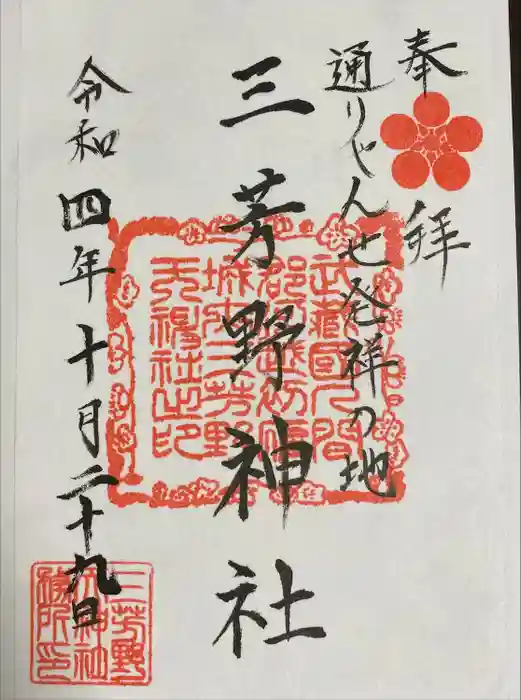 奉拝
通りゃんせ発祥の地
三芳野神社
令和四年十月二十九日
武藏國入間
郡河越初雁
城内三芳野
社之印
三芳野
務所印